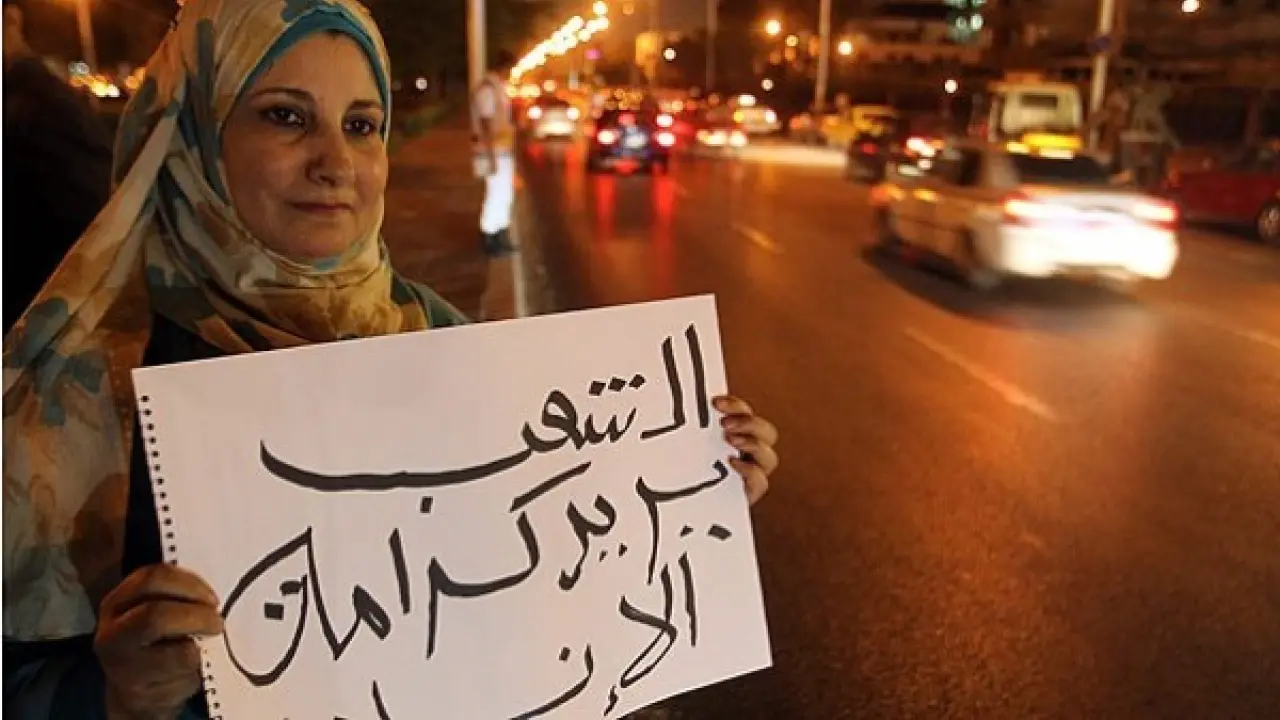 الشعب
يريد كرامة
الإنسان